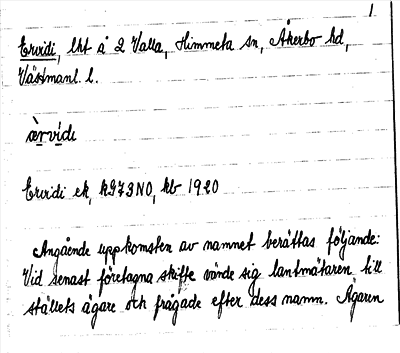 1
Ervidi, lht å 2 Valla, Himmeta sn, Åkerbo hd,
Västmanl. l.
ærvidi
Ervidi ek, k973NO, kb 1920
Angående uppkomsten av namnet berättas följande:
Vid senast företagna skifte vände sig lantmätaren till
ställets ägare och frågade efter dess namn. Ägaren